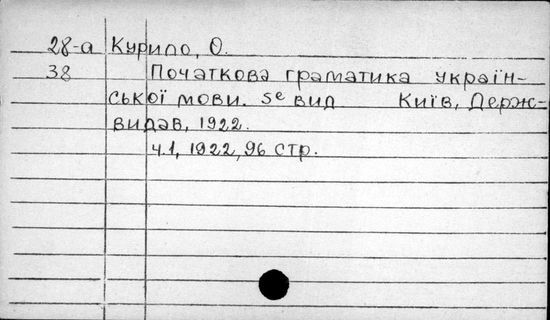 28-а Курило, О.
38 Початкова граматика україн-
ської мови. 5е вид Київ, Держ-
видав, 1922.
ч.1, 1922, 96 стр.